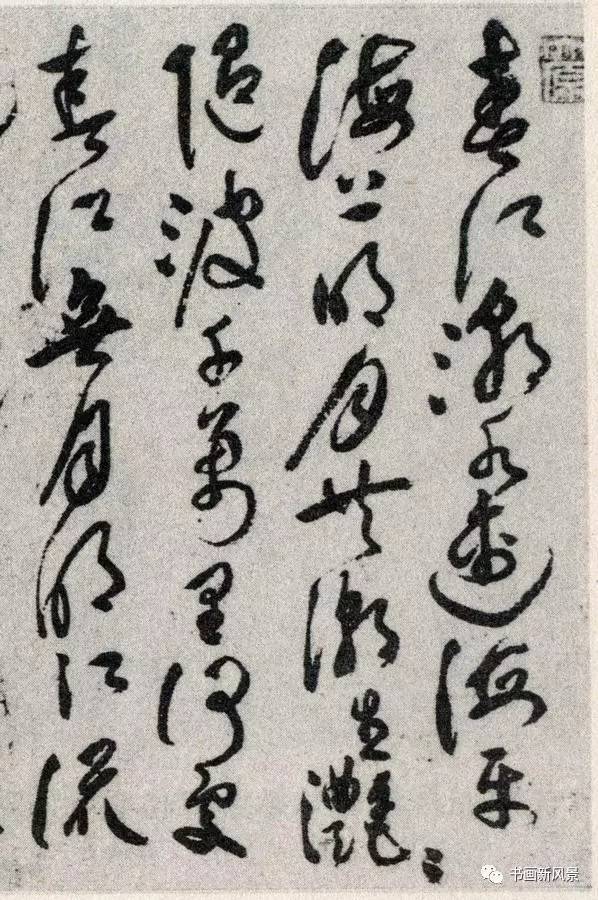 春江潮水連海平
海上明月共潮生灩〻
隨波千萬里何處
春江無月明江流
书画新风景